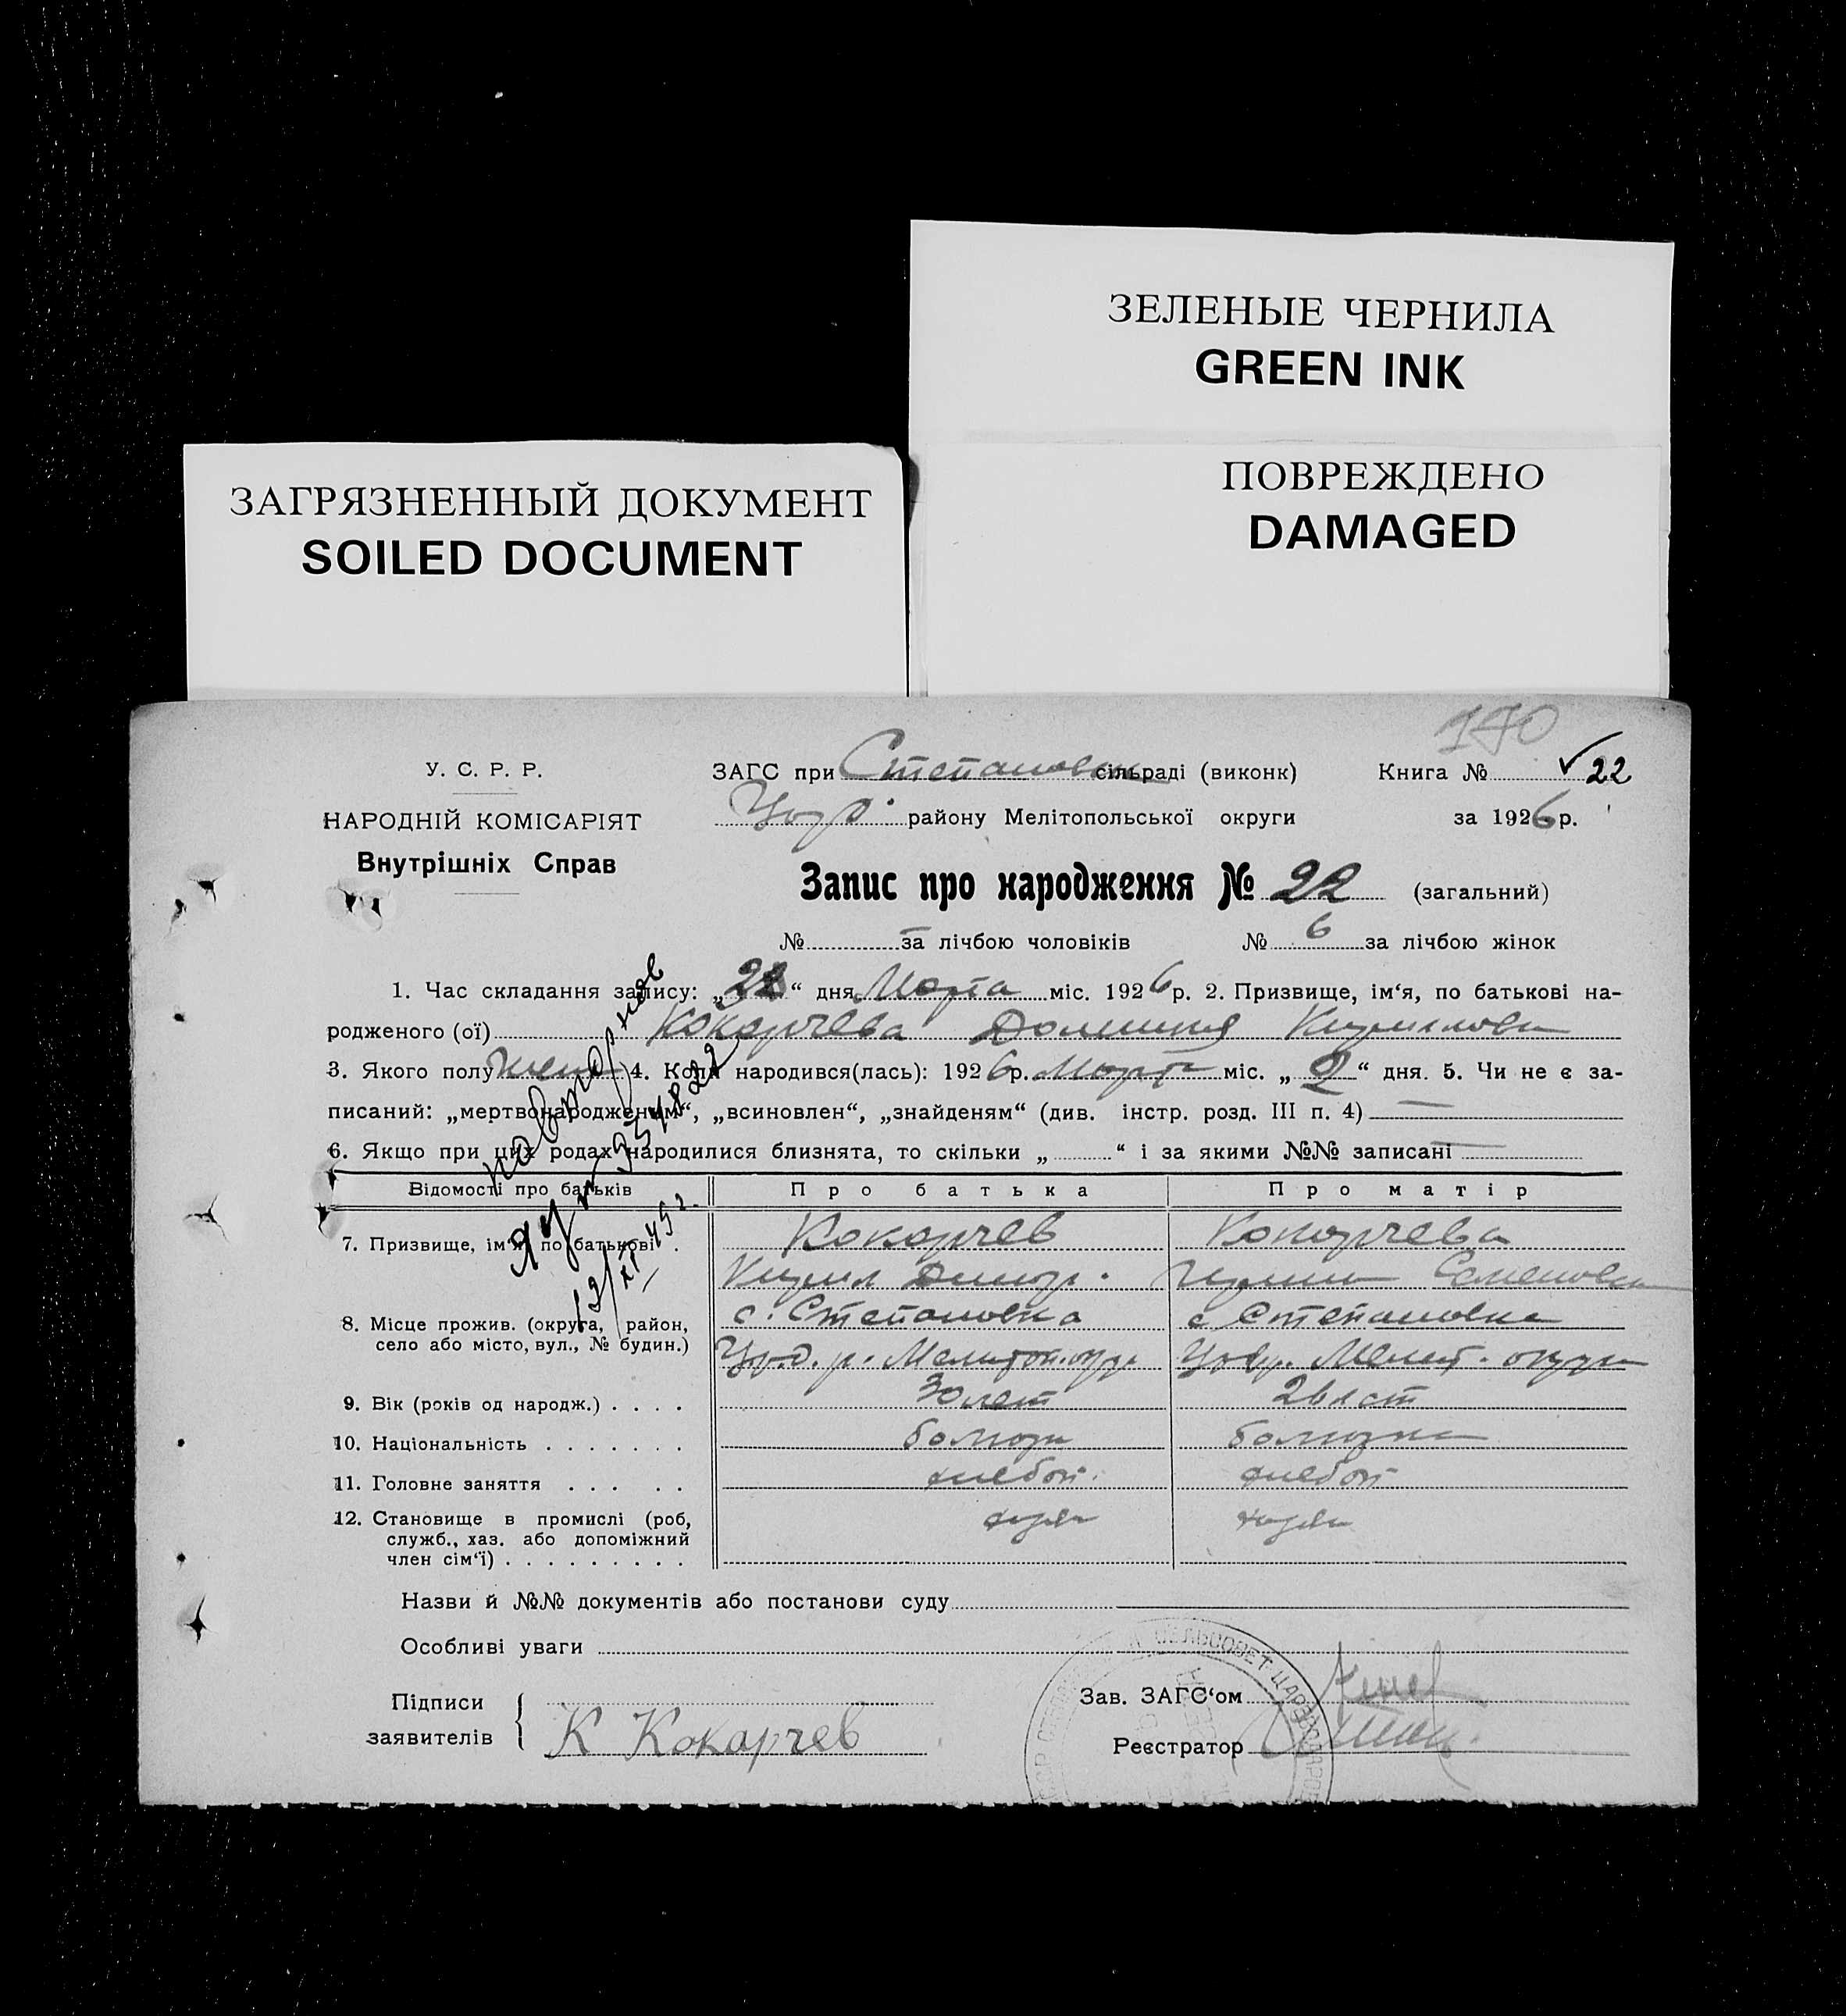 ЗЕЛЕНЫЕ ЧЕРНИЛА
GREEN INK
ПОВРЕЖДЕНО
DAMAGED
ЗАГРЯЗНЕННЫЙ ДОКУМЕНТ
SOILED DOCUMENT
У. С. Р. Р.
НАРОДНІЙ КОМІСАРІЯТ
Внутрішніх Справ
ЗАГС при Степановск сільраді (виконк) Книга № 22
району Мелітопольської округи за 1926 р.
Запис про народження № 22 (загальний)
№ — за лічбою чоловіків № 6 за лічбою жінок
1. Час складання запису: „ “ дня Марта міс. 1926 р. 2. Призвище, ім‘я, по батькові на-
родженого (ої) Кокарчева Кириловн
3. Якого полу жен 4. Коли народився(лась): 1926 р. Март міс. „ 2 “ дня. 5. Чи не є за-
писаний: „мертвонародженим“, „всиновлен“, „знайденям“ (див. інстр. розд. III п. 4) —
6. Якщо при цих родах народилися близнята, то скільки „ “ і за якими №№ записані —
повторное
ЯЦ № 354822
13/XI 45 г.
Відомості про батьків Про батька Про матір
7. Призвище, ім‘я, по батькові . Кокарчев Кокарчева
Кирил Семеновн
8. Місце прожив. (округа, район, с. Степановка с Степановка
село або місто, вул., № будин.)
9. Вік (років од народж.) . . . . 30 лет 26 лет
10. Національність . . . . . . . болгар болгарка
11. Головне заняття . . . . . хлебоп. хлебоп
12. Становище в промислі (роб,
служб., хаз. або допоміжний
член сім‘ї) . . . . . . . . .
Назви й №№ документів або постанови суду
Особливі уваги
Підписи
заявителів
К Кокарчев
Зав. ЗАГС‘ом
Реєстратор